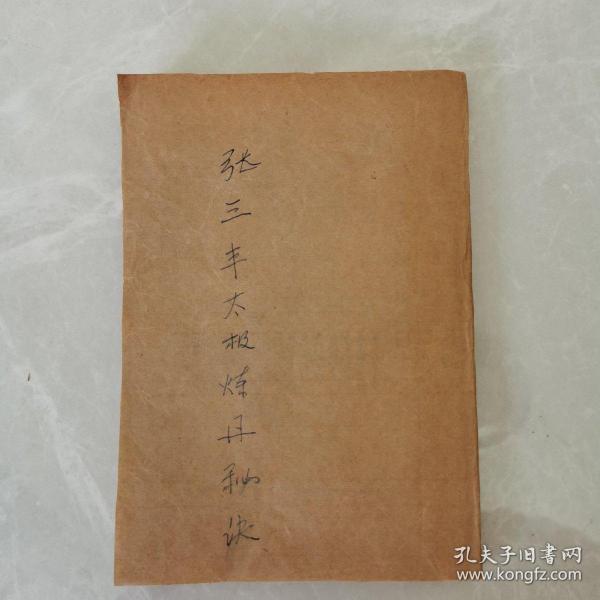 张三丰太极炼丹秘诀
孔夫子旧書网
www.kongfz.com